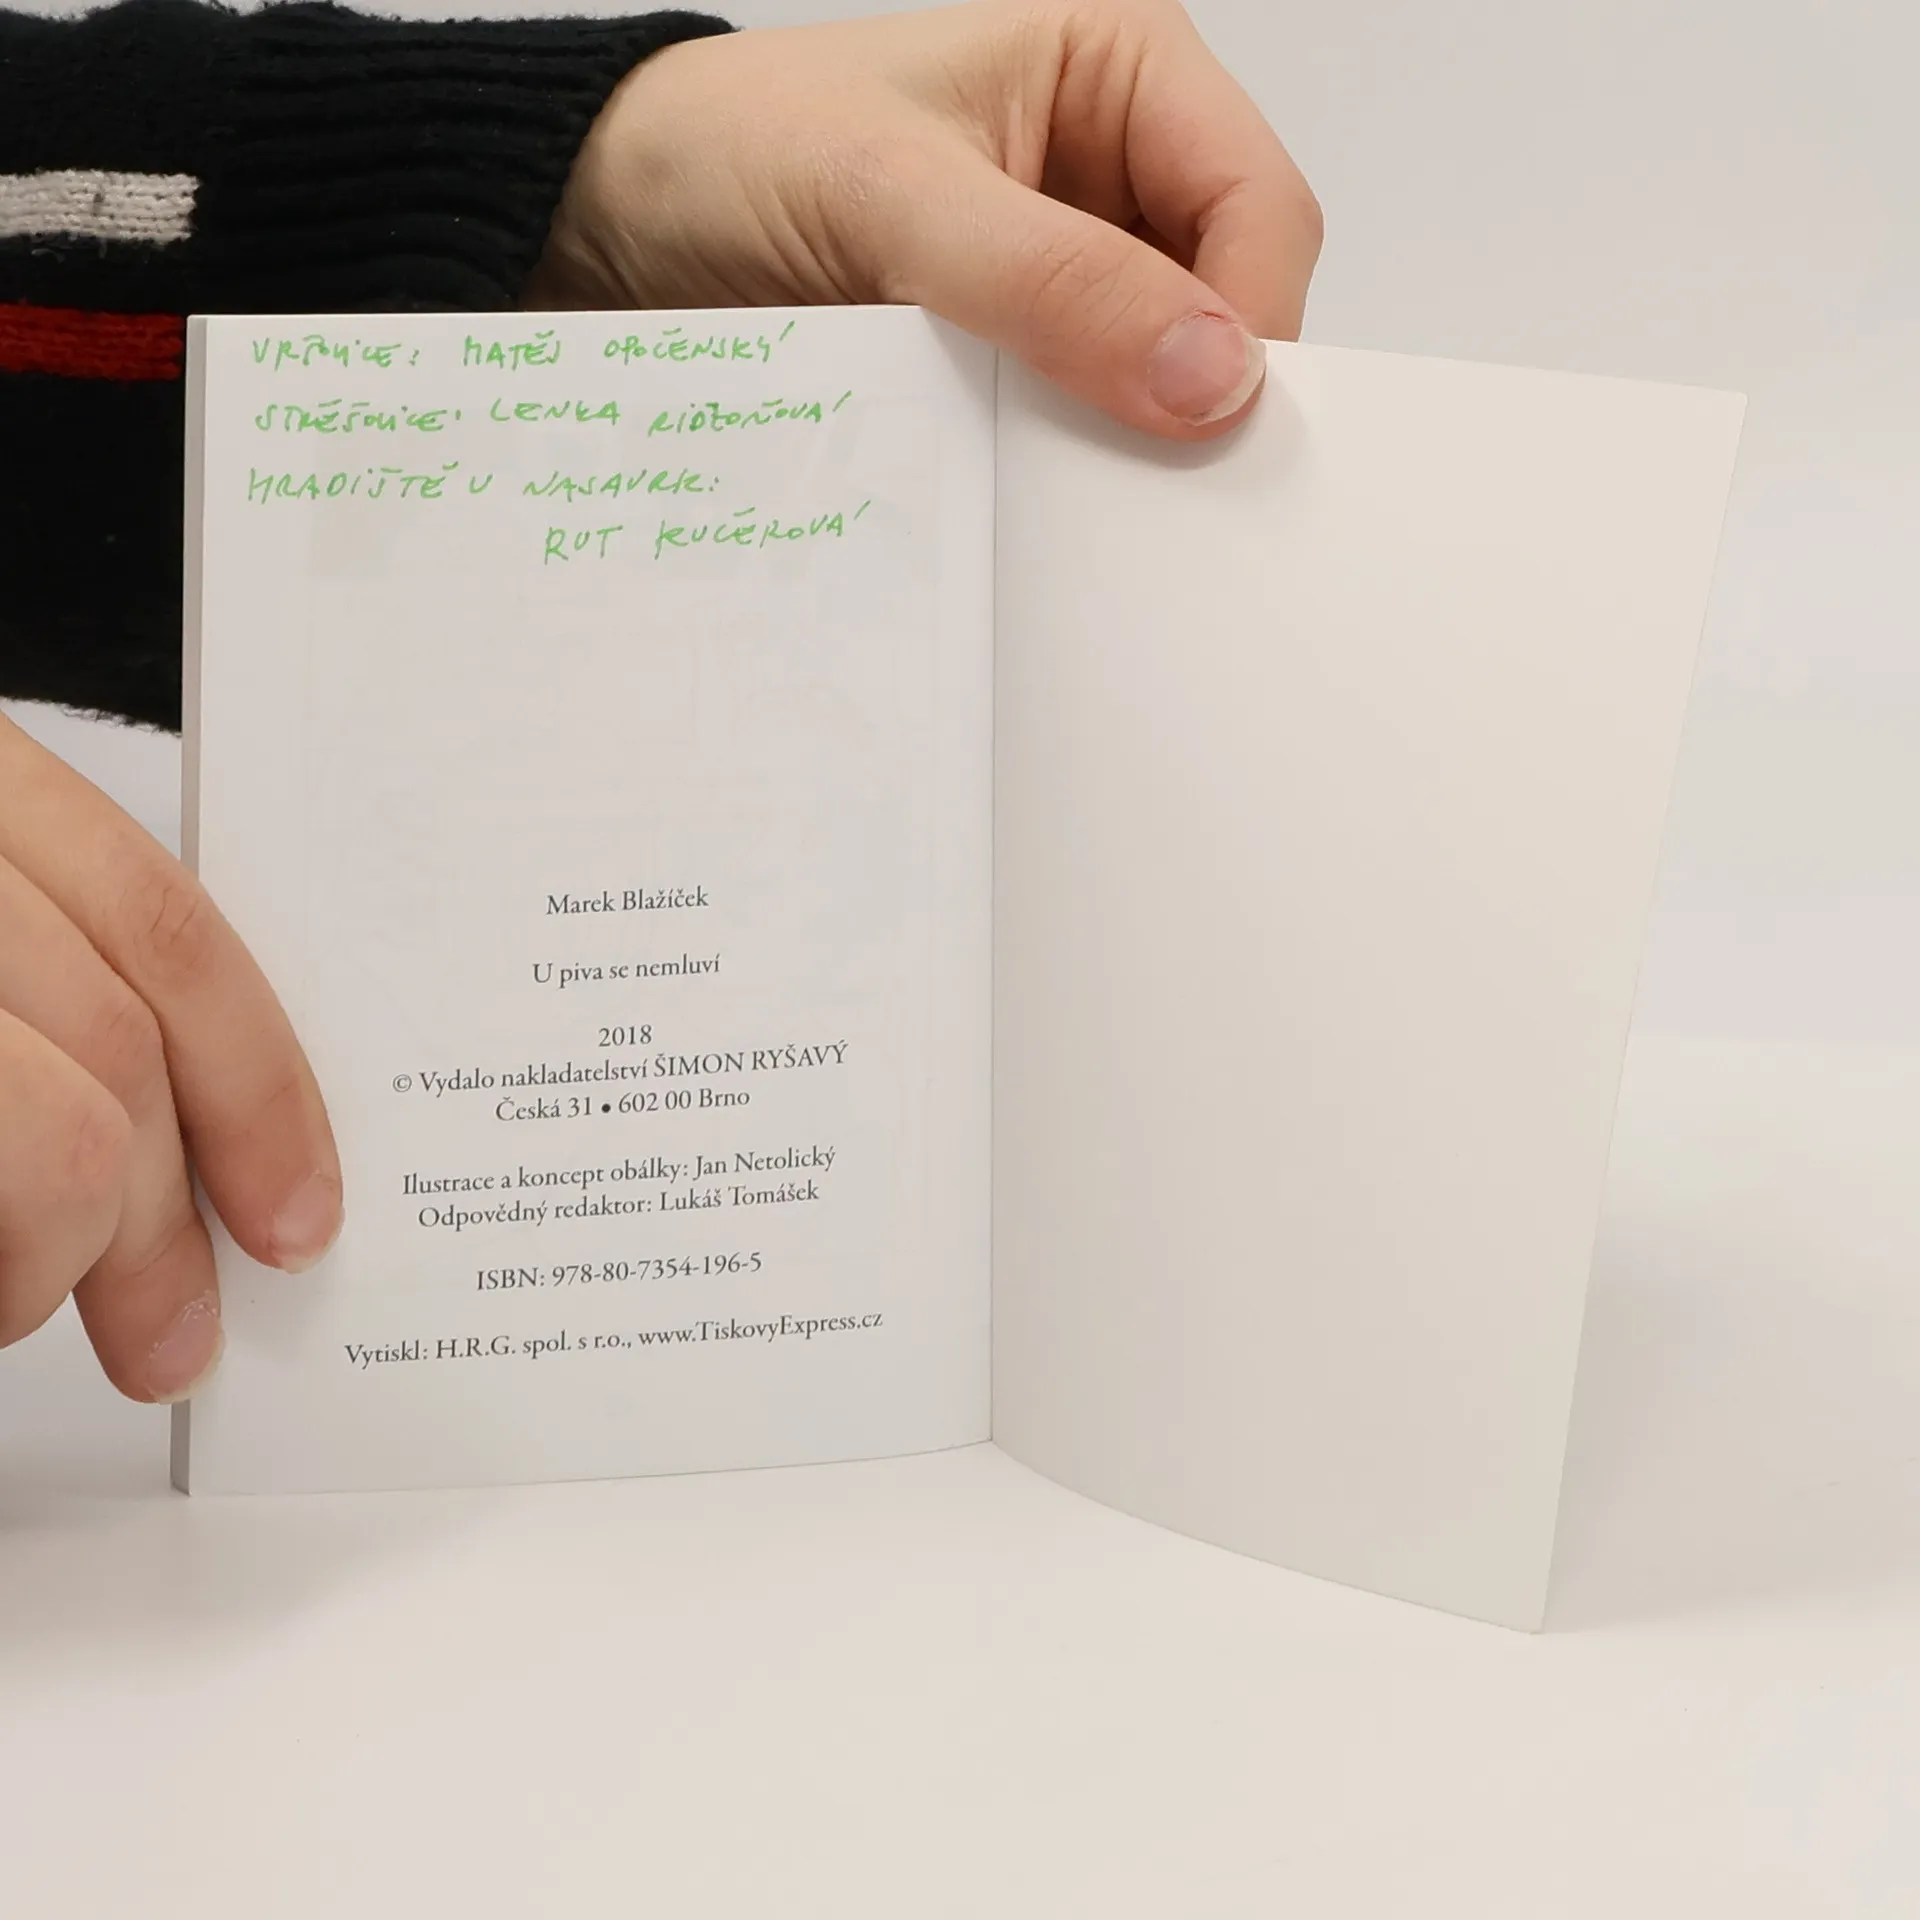 MATĚJ OPOČENSKÝ
LENKA RIDZOŇOVÁ
HRADIŠTĚ U NASAVRK:
RUT KUČEROVÁ
Marek Blažíček
U piva se nemluví
2018
© Vydalo nakladatelství ŠIMON RYŠAVÝ
Česká 31 • 602 00 Brno
Ilustrace a koncept obálky: Jan Netolický
Odpovědný redaktor: Lukáš Tomášek
ISBN: 978-80-7354-196-5
Vytiskl: H.R.G. spol. s r.o., www.TiskovyExpress.cz